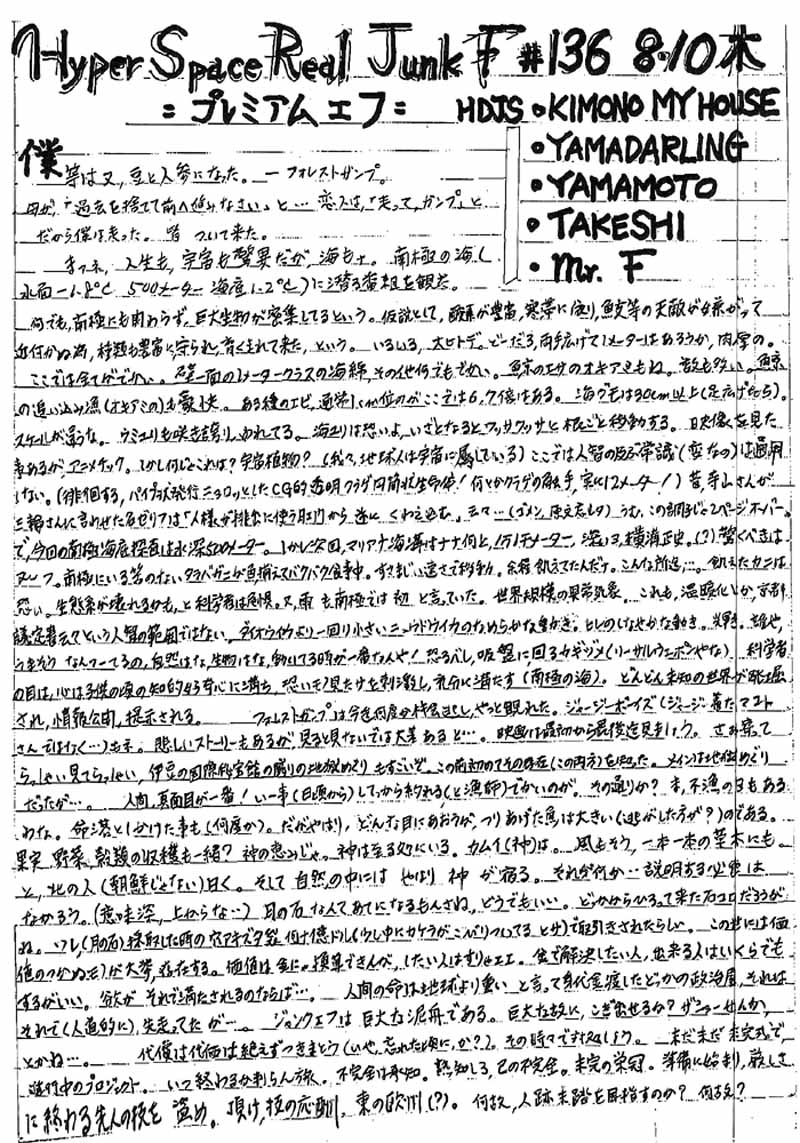 Hyper Space Real Junk F #136 8・10木
=プレミアムエフ= HDJS •KIMONO MY HOUSE
•YAMADARLING
•YAMAMOTO
•TAKESHI
•Mr. F
僕等は又、豆と人参になった。ーフォレストガンプ。
母が「過去を捨てて前へ進みなさい」と… 恋人は、「走って、ガンプ」と
だから僕は走った。皆 ついて来た。
まァネ、人生も、宇宙も驚異だが、海もォ。南極の海(
水面-1.8°C 500メーター 海底1.2°C)に潜る番組を観た。
何でも、南極にも関わらず、巨大生物が密集してるという。仮説として、酸素が豊富、寒帯に
近付かぬ為、種類も豊富に、守られ、育くまれて来た、という。いるいる、大ヒトデ。どーだろ、両手広げて1メーターはあろうか、肉厚の。
ここでは全てがでかい。壁一面の1メータークラスの海綿、その他何でもでかい。魚京のエサのオキアミもね。
の追い込み漁(オキアミの)も豪快。ある種のエビ、通常1cm位のがここでは6,7倍はある。海グモは30cm以上(足広げたら)。
スケールが違うな。ウミユリも咲き誇り、ゆれてる。海ユリは恐いよ、いざとなるとワッサワッサと根こごと移動する。映像を見た
事あるが、アニメチック。しかし何じゃこれは?宇宙植物?(我々、地球人は宇宙に属している)ここでは人智の及ぶ常識(変なの)は通用
しない。
で、今回の南極海底探査は水深500メーター。しかし次回、マリアナ海溝はナナ何と、1万1千メーター、深いヨ、横溝正史。(?)驚くべきは
南極にいる筈のないタラバガニが魚捕えてバクバク食事中。すさまじい速さで移動。余程飢えてたんだナ。こんな所迄…。飢えたカニは
恐い。生態系が壊れるかも、と科学者は危惧。又、雨も南極では初と言っていた。世界規模の異常気象。これも、温暖化とか、京都
議定書云々という人智の範囲ではない。ダイオウイカより一回り小さいニュウドウイカのなめらかな動き。
なんつーてるの、自然はな、生物はな、動いてる時が一番なんや!恐るべし、吸盤に、回るカギヅメ(リーサルウェポンやな) 科学者
の目は、心は子供の頃の知的好奇心に満ち、恐いモノ見たさを刺激し、充分に満たす(南極の海)。どんどん未知の世界が発掘
され、情報公開、提示される。 フォレストガンプは今迄何度か見逃し、やっと観れた。ジャージーボーイズ(ジャージー着たマコト
さんではなく…)も来。悲しいストーリーもあるが、見ると見ないでは大差あると…。映画は最初から最後迄見ましょう。さあ寄って
らっしゃい見てらっしゃい、伊豆の国際秘宝館の隣りの地獄めぐりもすごいぞ。この前初めてその存在(この両方)を知った。メインは地獄めぐり
だったが…。 人間、真面目が一番!いー事(日頃から)してっから釣れる(と漁師)でかいのが。その通りか?ま、不漁の日もある
わな。命落としかけた事も(何度か)。だがやはり、どんな目にあおうが、つりあげた魚は大きい(逃がした方が?)のである。
果実 野菜、穀類の収穫も一緒?神の恵みじゃ。神は至る処にいる。カムイ(神)は。風もそう、一本一本の草木にも。
と、北の人(朝鮮じゃない)曰く。そして自然の中には やはり 神 が宿る。それが何か…説明する必要は
なかろう。(意味深、上からな…)月の石なんてあてになるもんさね、どうでもいい。どっかからひろって来た石コロだろうが
ね。ソレ(月の石)採取した時の穴アキズタ袋 何十億ドル(少し中にカケラがこびりついてると少)で取引きされたらしい。この世には価
値のつかぬモノが大勢、存在する。価値は金に換算できんが、したい人はすりゃエエ。金で解決したい人、出来る人はいくらでも
するがいい。欲がそれで満たされるのならば…。 人間の命は地球より重いと言って身代金渡したどっかの政治屋、それは
それで(人道的に)、先走ってたが…。ジャンクエフは巨大な泥舟である。巨大な故に、こぎ出せるか?
とかね…。 代償は代価は絶えずつきまとう(いや、忘れた頃に、か?)。その時々で対処しよう。まだまだ未完丸で
進行中のプロジェクト。いつ終わるか判らん旅。不完全は承知。熟知しろ、己の不完全。未完の栄冠。準備に始まり、厳しさ
に終わる先人の技を 盗め。頂け、技の応酬、東の欧州(?)。何故、人跡未踏を目指すのか?何故?